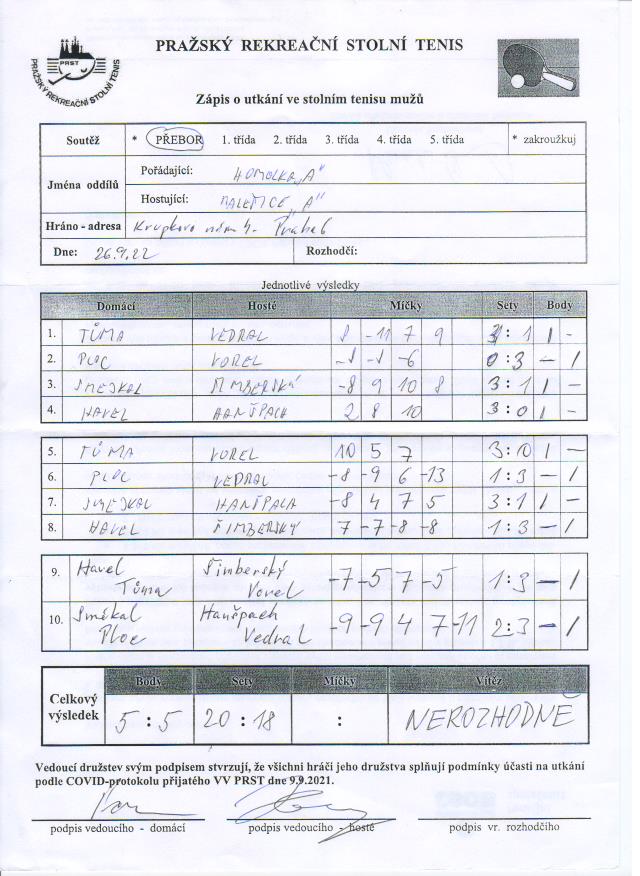 PRAŽSKÝ REKREAČNÍ STOLNÍ TENIS
PRST
PRAŽSKÝ REKREAČNÍ STOLNÍ TENIS
Zápis o utkání ve stolním tenisu mužů
Soutěž * PŘEBOR 1. třída 2. třída 3. třída 4. třída 5. třída * zakroužkuj
Jména oddílů
Pořádající: HOMOLKA „A"
Hostující: MALEŠICE „A"
Hráno - adresa Krupkovo nám 4. Praha 6
Dne: 26.9.22 Rozhodčí:
Jednotlivé výsledky
Domácí Hosté Míčky Sety Body
1. TŮMA VEDRAL -11 7 9 3:1 1 -
2. PLOC VOREL -6 0:3 - 1
3. SMEJKAL -8 9 10 8 3:1 1 -
4. HAVEL HANŠPACH 2 8 10 3:0 1 -
5. TŮMA VOREL 10 5 7 3:0 1 -
6. PLOC VEDRAL -8 -9 6 -13 1:3 - 1
7. SMEJKAL -8 4 7 5 3:1 1 -
8. HAVEL ŠIMBERSKÝ 7 -7 -8 -8 1:3 - 1
9. Havel Šimberský -7 -5 7 -5 1:3 - 1
Tůma Vorel
10. Smékal Hanšpach -9 -9 4 7 -11 2:3 - 1
Ploc Vedral
Celkový výsledek
Body Sety Míčky Vítěz
5:5 20:18 : NEROZHODNĚ
Vedoucí družstev svým podpisem stvrzují, že všichni hráči jeho družstva splňují podmínky účasti na utkání
podle COVID-protokolu přijatého VV PRST dne 9.9.2021.
podpis vedoucího - domácí podpis vedoucího - hosté podpis vr. rozhodčího